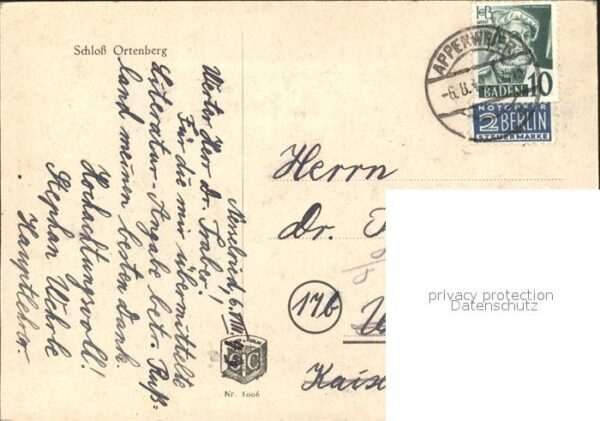 Schloß Ortenberg
6. VIII. 49
Werter Herr Dr. Traber!
Für die mir übermittelte
Literatur-Angabe betr. Ruß-
land meinen besten Dank.
Hochachtungsvoll!
Stephan Wehrle
Hauptlehrer.
Nr. 1006
APPENWEIER
-6.8.
BADEN 10
NOTOPFER
2 BERLIN
STEUERMARKE
Herrn
Dr.
17b
Kais
privacy protection
Datenschutz